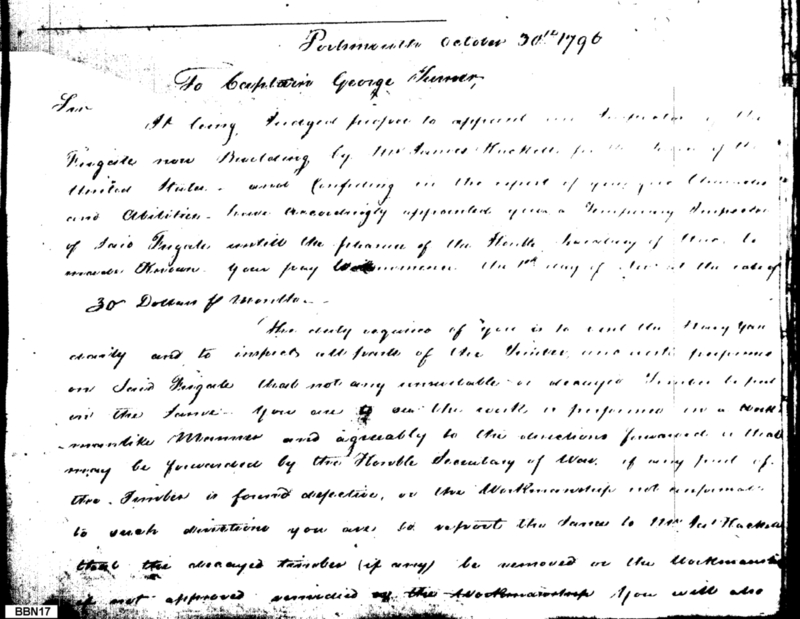 Portsmouth October 30th 1796
To Captain George Turner,
Sir
It being Judged proper to appoint an Inspector of the
Frigate now Building by Mr James Hackett for the of the
United States - and Confiding in the report of your Character
and Abilities - have accordingly appointed you a Temporary Inspector
of Said Frigate untill the pleasure of the Honble Secretary of War be
made Known. Your pay to commence the 1st day of at the rate of
30 Dollars pr Month -
The duty required of You is to the Navy Yard
daily and to inspect all parts of the Timber, and work
on Said Frigate that not any unsuitable or decayed Timber be put
in the Same - You are to see the work is performed in a work
manlike Manner and agreeably to the directions forwarded or that
may be forwarded by the Honble Secretary of War. if any part of
the Timber is found defective, or the Workmanship not
to such directions you are to report the Same to Mr Jas Hackett
that the decayed timber (if any) be removed or the Workmanship
if not approved remidied or the Workmanship You will also
BBN17